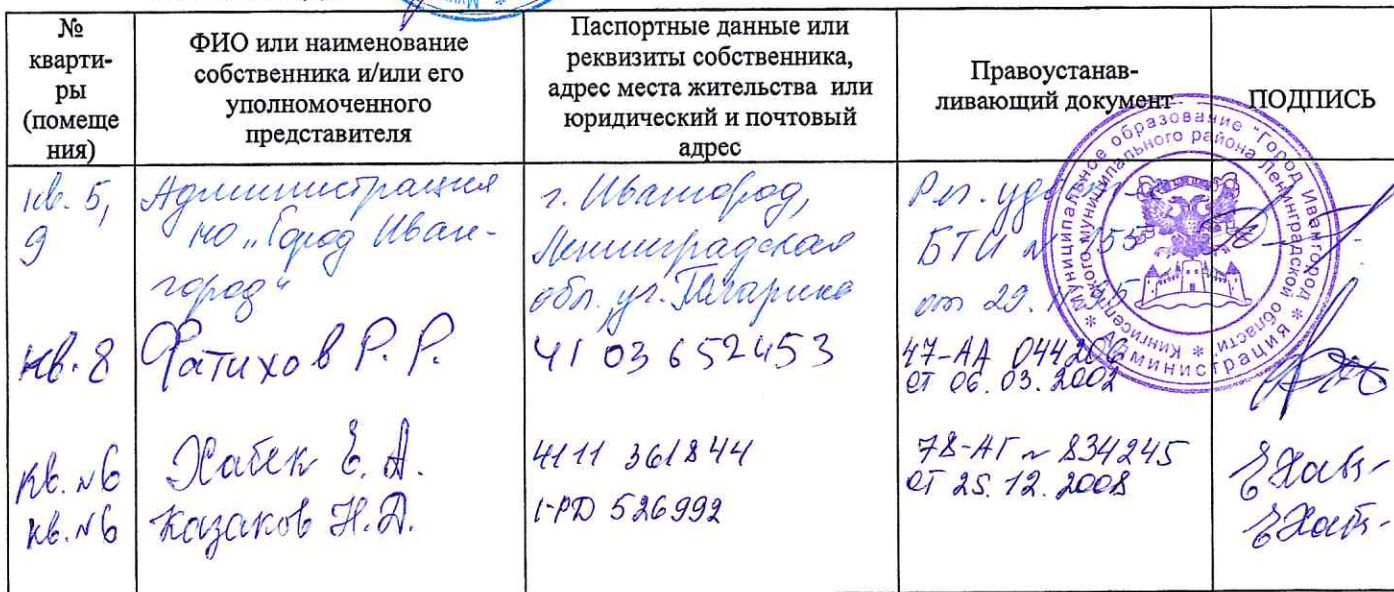 №
кварти-
ры
(помеще
ния)
ФИО или наименование
собственника и/или его
уполномоченного
представителя
Паспортные данные или
реквизиты собственника,
адрес места жительства или
юридический и почтовый
адрес
Правоустанав-
ливающий документ
ПОДПИСЬ
кв. 5,
9
Администрация
МО "Город Иван-
город"
г. Ивангород,
Ленинградская
обл., ул. Гагарина
Рег. удост
БТИ № 155
от 29.
кв. 8
Фатихов Р. Р.
41 03 652453
47-АА 044206
от 06. 03. 2002
кв. №6
Хабек Е. А.
4111 361844
78-АГ № 834245
от 25. 12. 2008
кв. №6
Казаков Н. Д.
526992
Муниципальное образование "Город Ивангород"
Кингисеппского муниципального района Ленинградской области
* Администрация *